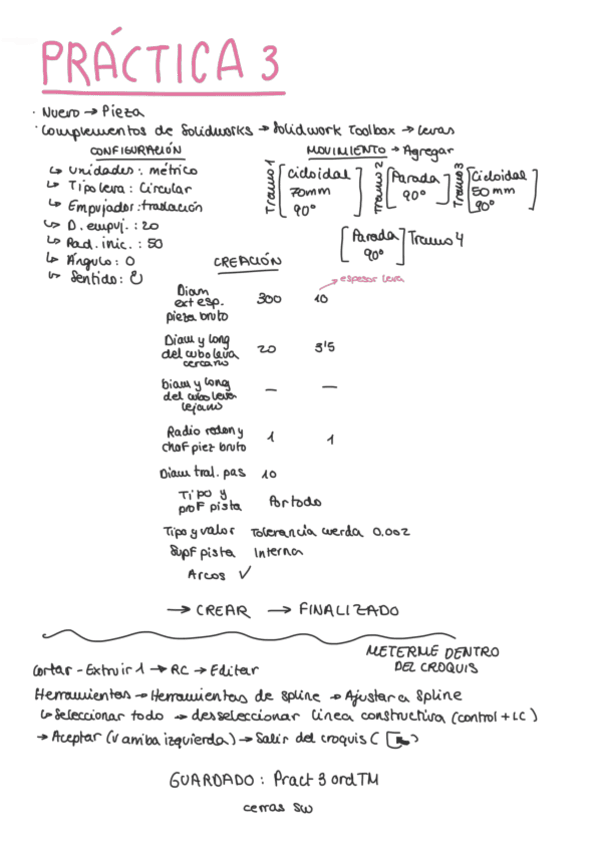 PRÁCTICA 3
· Nuevo → Pieza
· Complementos de Solidworks → Solidwork Toolbox → levas
CONFIGURACIÓN
↳ Unidades: métrico
↳ Tipo leva: Circular
↳ Empujador: traslación
↳ D. empuj.: 20
↳ Rad. inic.: 50
↳ Ángulo: 0
↳ Sentido: ↻
MOVIMIENTO → Agregar
Tramo 1 [Cicloidal
70mm
90º]
Tramo 2 [Parada
90º]
Tramo 3 [Cicloidal
50 mm
90º]
[Parada
90º] Tramo 4
CREACIÓN
→ espesor leva
Diam
ext esp. 300 10
pieza bruto
Diam y long
del cubo leva 20 3'5
cercano
Diam y long
del cubo leva — —
lejano
Radio redon y
chaf piez bruto 1 1
Diam tral. pas 10
Tipo y
prof pista Por todo
Tipo y valor Tolerancia cuerda 0.002
Supf pista Interna
Arcos √
→ CREAR → FINALIZADO
METERME DENTRO
DEL CROQUIS
Cortar - Extruir 1 → RC → Editar
Herramientas → Herramientas de spline → Ajustar a Spline
↳ Seleccionar todo → desseleccionar linea constructiva (control + LC)
→ Aceptar (V arriba izquierda) → Salir del croquis ( )
GUARDADO: Pract 3 ord TM
cerras SW